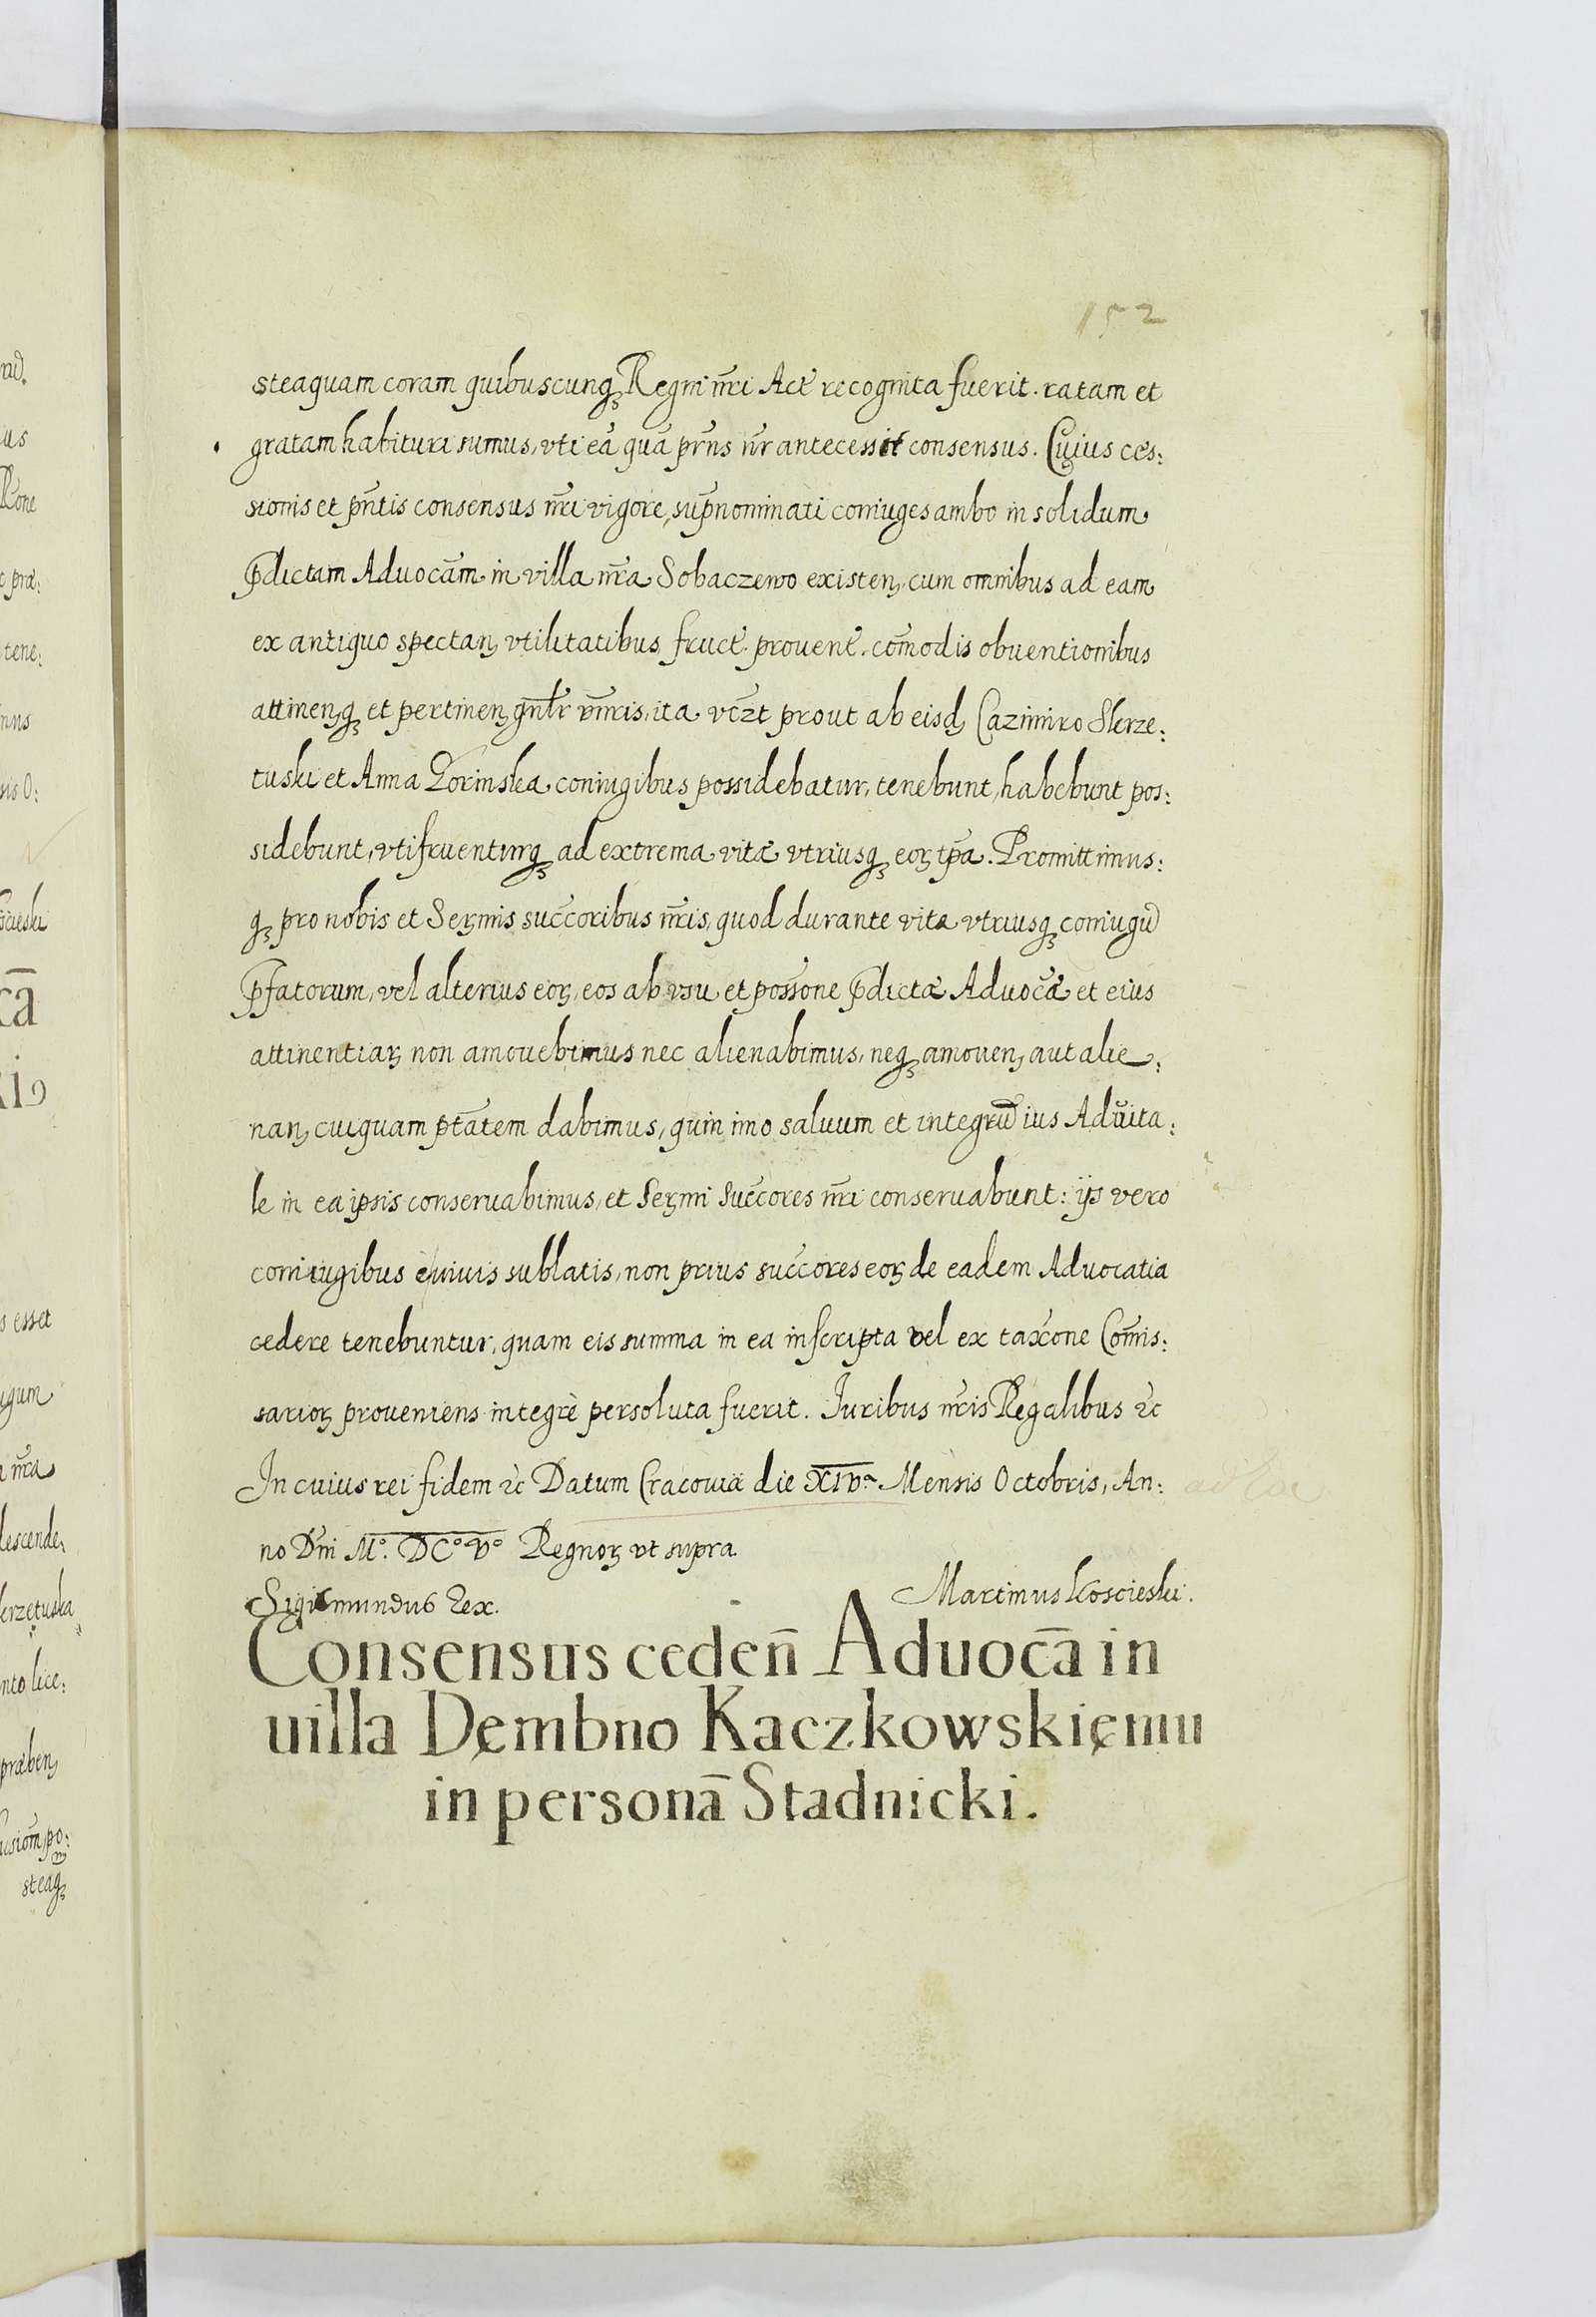 152
steaquam coram quibuscunqꝫ Regni nr̃i Act̃ recognita fuerit. ratam et
gratam habituri sumus, vti eã quã pr̃ns nr̃ antecessit consensus. Cuius ces:
sionis et pñtis consensus nr̃i vigore, sup̃nominati coniuges ambo in solidum
p̃dictam Aduocãm in villa nr̃a Sobaczewo existenꝫ cum omnibus ad eam
ex antiquo spectanꝫ vtilitatibus fruct̃. prouent̃. com̃odis obuentionibus
attinenꝫqꝫ et pertinenꝫ gñlr vñiris, ita vcz̃t prout ab eisdꝫ Cazimiro Skrze:
tuski et Anna Zorinska coniugibus possidebatur, tenebunt, habebunt pos:
sidebunt, vtifruenturqꝫ ad extrema vitæ vtriusqꝫ eorꝫ tp̃a. Promittimus:
qꝫ pro nobis et Serꝫmis succ̃oribus nr̃is, quod durante vita vtriusqꝫ coniugũ
p̃fatorum, vel alterius eorꝫ, eos ab vsu et poss̃one p̃dictæ Aduoc̃æ et eius
attinentiarꝫ non amouebimus nec alienabimus, neqꝫ amouenꝫ aut alie:
nanꝫ cuiquam ptãtem dabimus, quin imo saluum et integrũ ius Aduita:
le in ea ipsis conseruabimus, et Serꝫmi Succ̃ores nr̃i conseruabunt: ijs vero
coniugibus e viuis sublatis, non prius succ̃ores eorꝫ de eadem Aduocatia
cedere tenebuntur, quam eis summa in ea inscripta vel ex tax̃one Com̃is:
sariorꝫ proueniens integrè persoluta fuerit. Iuribus nr̃is Regalibus ꝛc
In cuius rei fidem ꝛc Datum Cracouiæ die XIVa Mensis Octobris, An:
no Dñi Mo. DCo Vo Regnorꝫ vt supra
Sigismundus Rex. Martinus Koscieski.
Consensus cedeñ Aduocãa in
uilla Dembno Kaczkowskięmu
in personã Stadnicki.